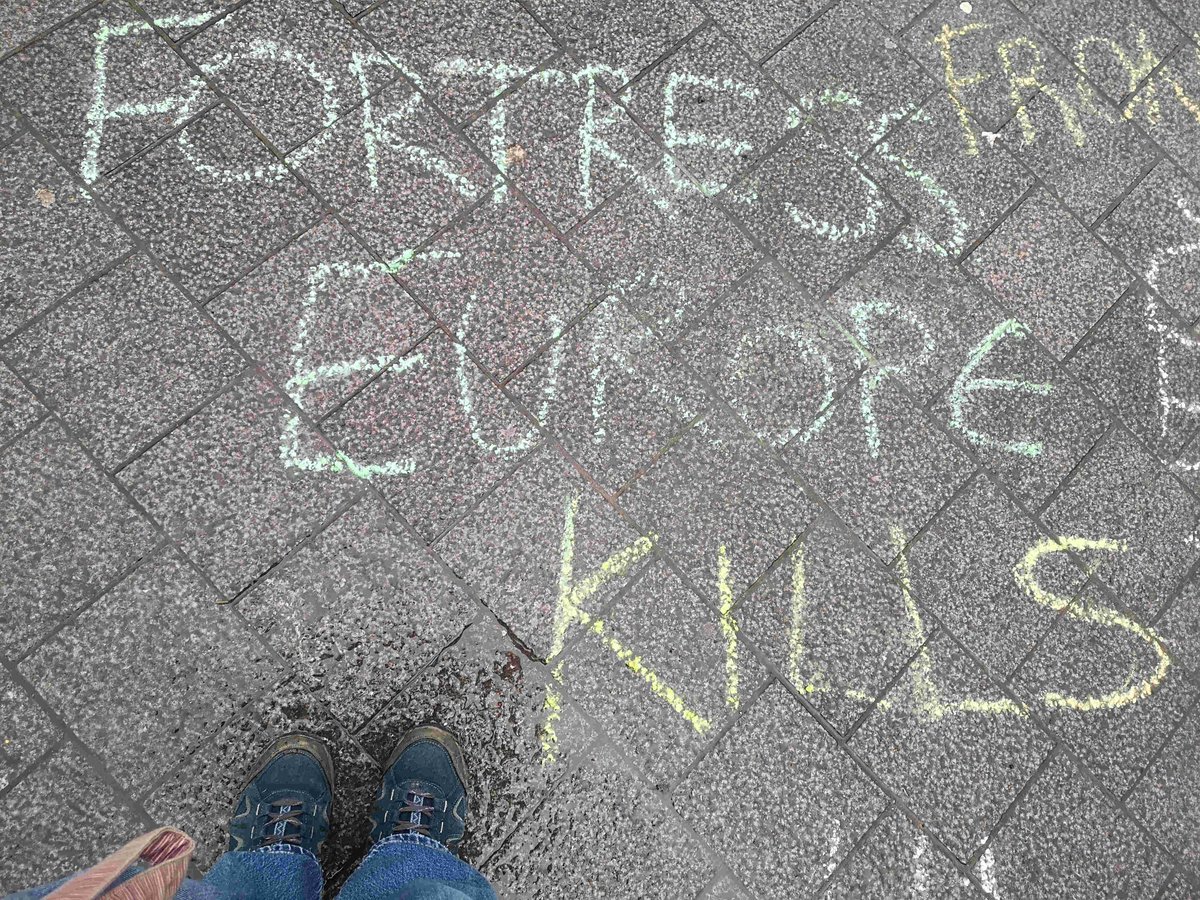 FORTRESS
EUROPE
KILLS
FROM